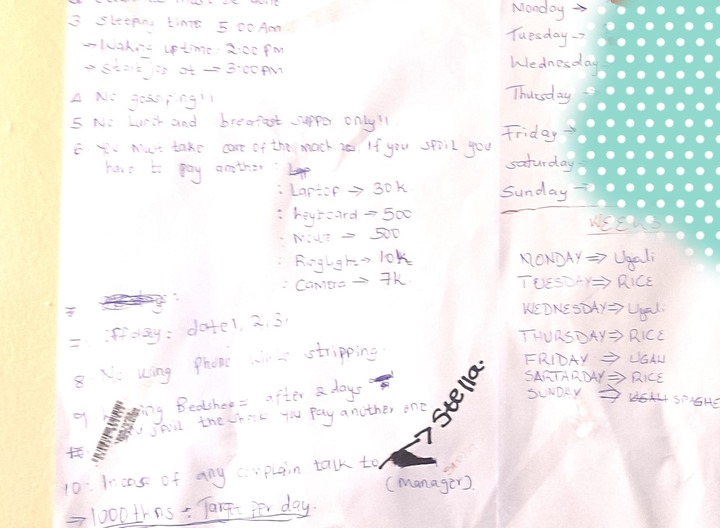 3 Sleeping time 5:00 Am
→ Waking up time: 2:00 pm
→ Start job at → 3:00 pm
4 No gossiping!!
5 No Lunch and breakfast supper only!!
6 You must take care of the machines. If you spoil you
have to pay another:
: Laptop → 30k
: Keyboard → 500
: Mouse → 500
: Ringlight → 10k
: Camera → 7k.
7 Offday: date 1, 2, 3.
8 No using Phone stripping.
9 Bedsheets after 2 days
spoil the you pay another one
10: Incase of any complain talk to → Stella.
(manager).
→ 1000tkns = Target per day.
Monday →
Tuesday →
Wednesday
Thursday →
Friday →
saturday
Sunday →
MONDAY ⇒ Ugali
TUESDAY ⇒ RICE
WEDNESDAY ⇒ Ugali
THURSDAY ⇒ RICE
FRIDAY ⇒ UGALI
SARTARDAY ⇒ RICE
SUNDAY ⇒ SPAGHE